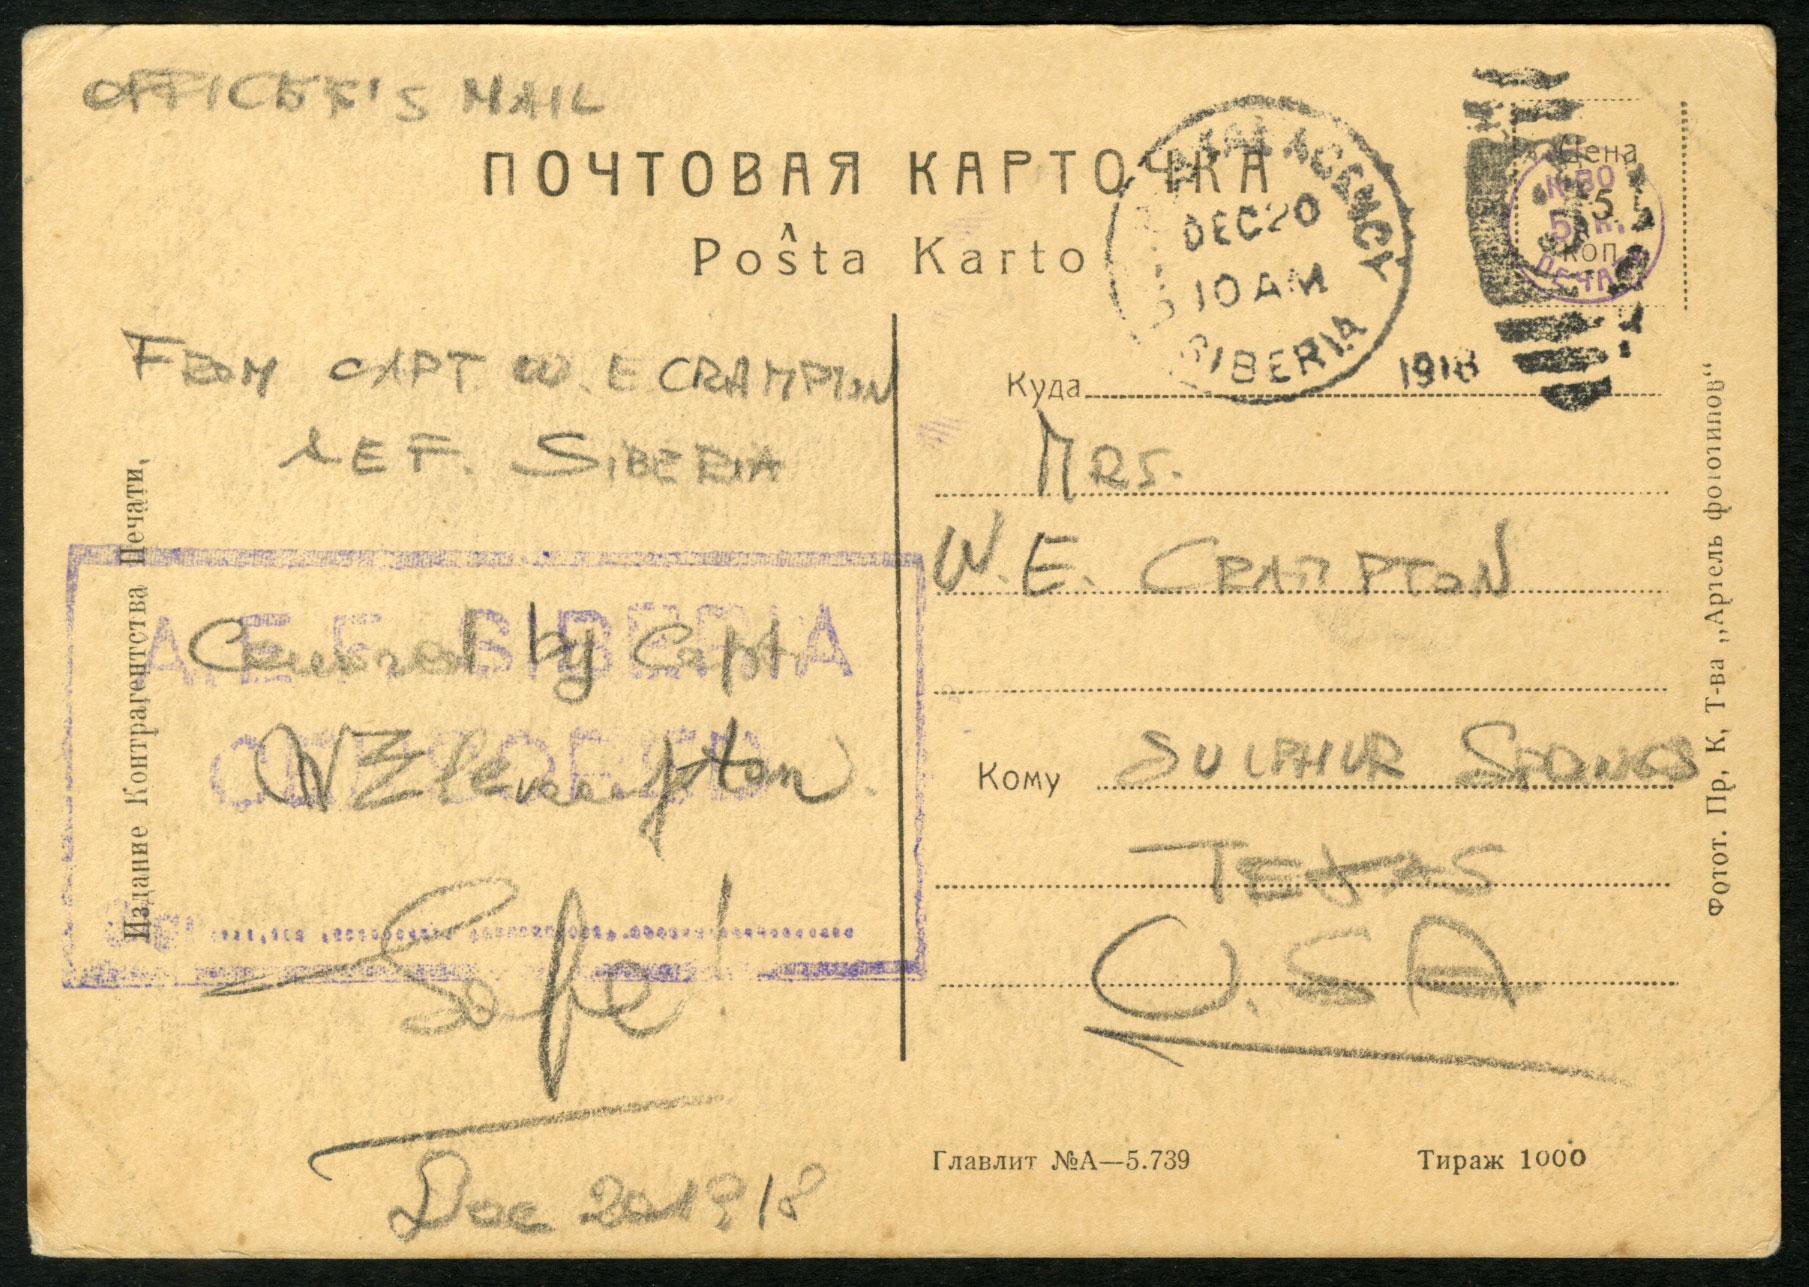 OFFICER'S MAIL
ПОЧТОВАЯ КАРТОЧКА
Poŝta Karto
POSTAL AGENCY
DEC 20
10 AM
SIBERIA
1918
Цена
5
коп.
К-ВО
5 К.
ПЕЧАТИ
FROM CAPT W. E CRAMPTON
AEF. SIBERIA
A.E.F. SIBERIA
CENSORED
Censored by Capt
W E Crampton.
Safe!
Dec 20 1918
Издание Контрагентства Печати.
Куда
MRS.
W. E. CRAMPTON
Кому SULPHUR SPRINGS
TEXAS
U.S A
Фотот. Пр, К, Т-ва „Артель фототипов“
Главлит №А—5.739
Тираж 1000